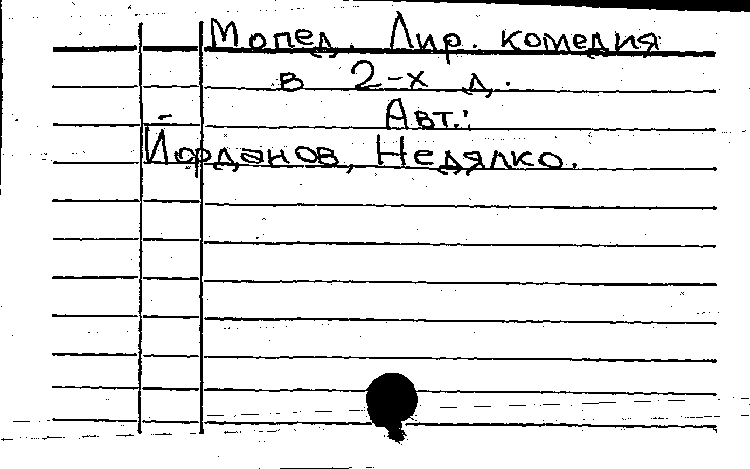 Мопед. Лир. комедия
в 2-х д.
Авт.:
Йорданов, Недялко.